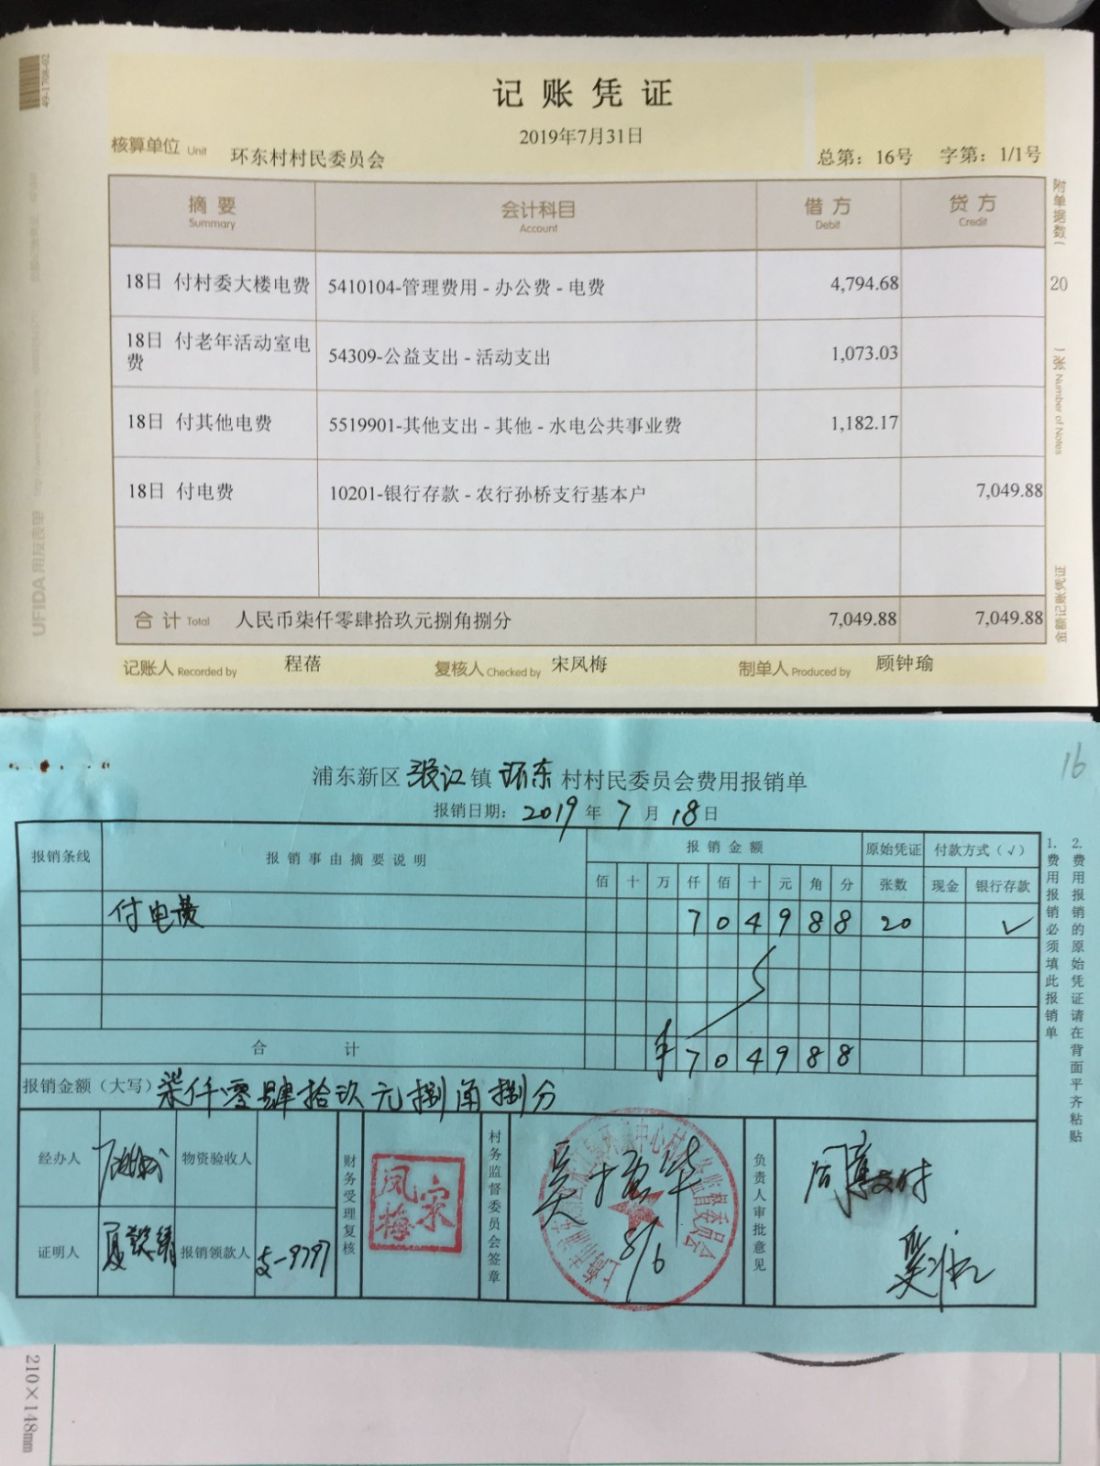 49-1708-02
记账凭证
2019年7月31日
核算单位 Unit 环东村村民委员会
总第：16号 字第：1/1号
摘要 会计科目 借方 贷方
Summary Account Debit Credit
18日 付村委大楼电费 5410104-管理费用 - 办公费 - 电费 4,794.68
18日 付老年活动室电
费 54309-公益支出 - 活动支出 1,073.03
18日 付其他电费 5519901-其他支出 - 其他 - 水电公共事业费 1,182.17
18日 付电费 10201-银行存款 - 农行孙桥支行基本户 7,049.88
合计 Total 人民币柒仟零肆拾玖元捌角捌分 7,049.88 7,049.88
记账人 Recorded by 程蓓 复核人 Checked by 宋凤梅 制单人 Produced by 顾钟瑜
附单据数（ 20 张） Number of Notes
金额记账凭证
UFIDA
16
浦东新区张江镇环东村村民委员会费用报销单
报销日期：2019年7月18日
报销条线 报销事由摘要说明 报销金额 原始凭证 付款方式（√）
佰 十 万 仟 佰 十 元 角 分 张数 现金 银行存款
付电费 7 0 4 9 8 8 20 √
合计 ¥ 7 0 4 9 8 8
报销金额（大写） 柒仟零肆拾玖元捌角捌分
经办人 物资验收人
证明人 报销领款人 支-9797
财务受理复核
宋凤梅
村务监督委员会签章
8/6
负责人审批意见
同意支付
1.费用报销必须填此报销单
2.费用报销的原始凭证请在背面平齐粘贴
210×148mm